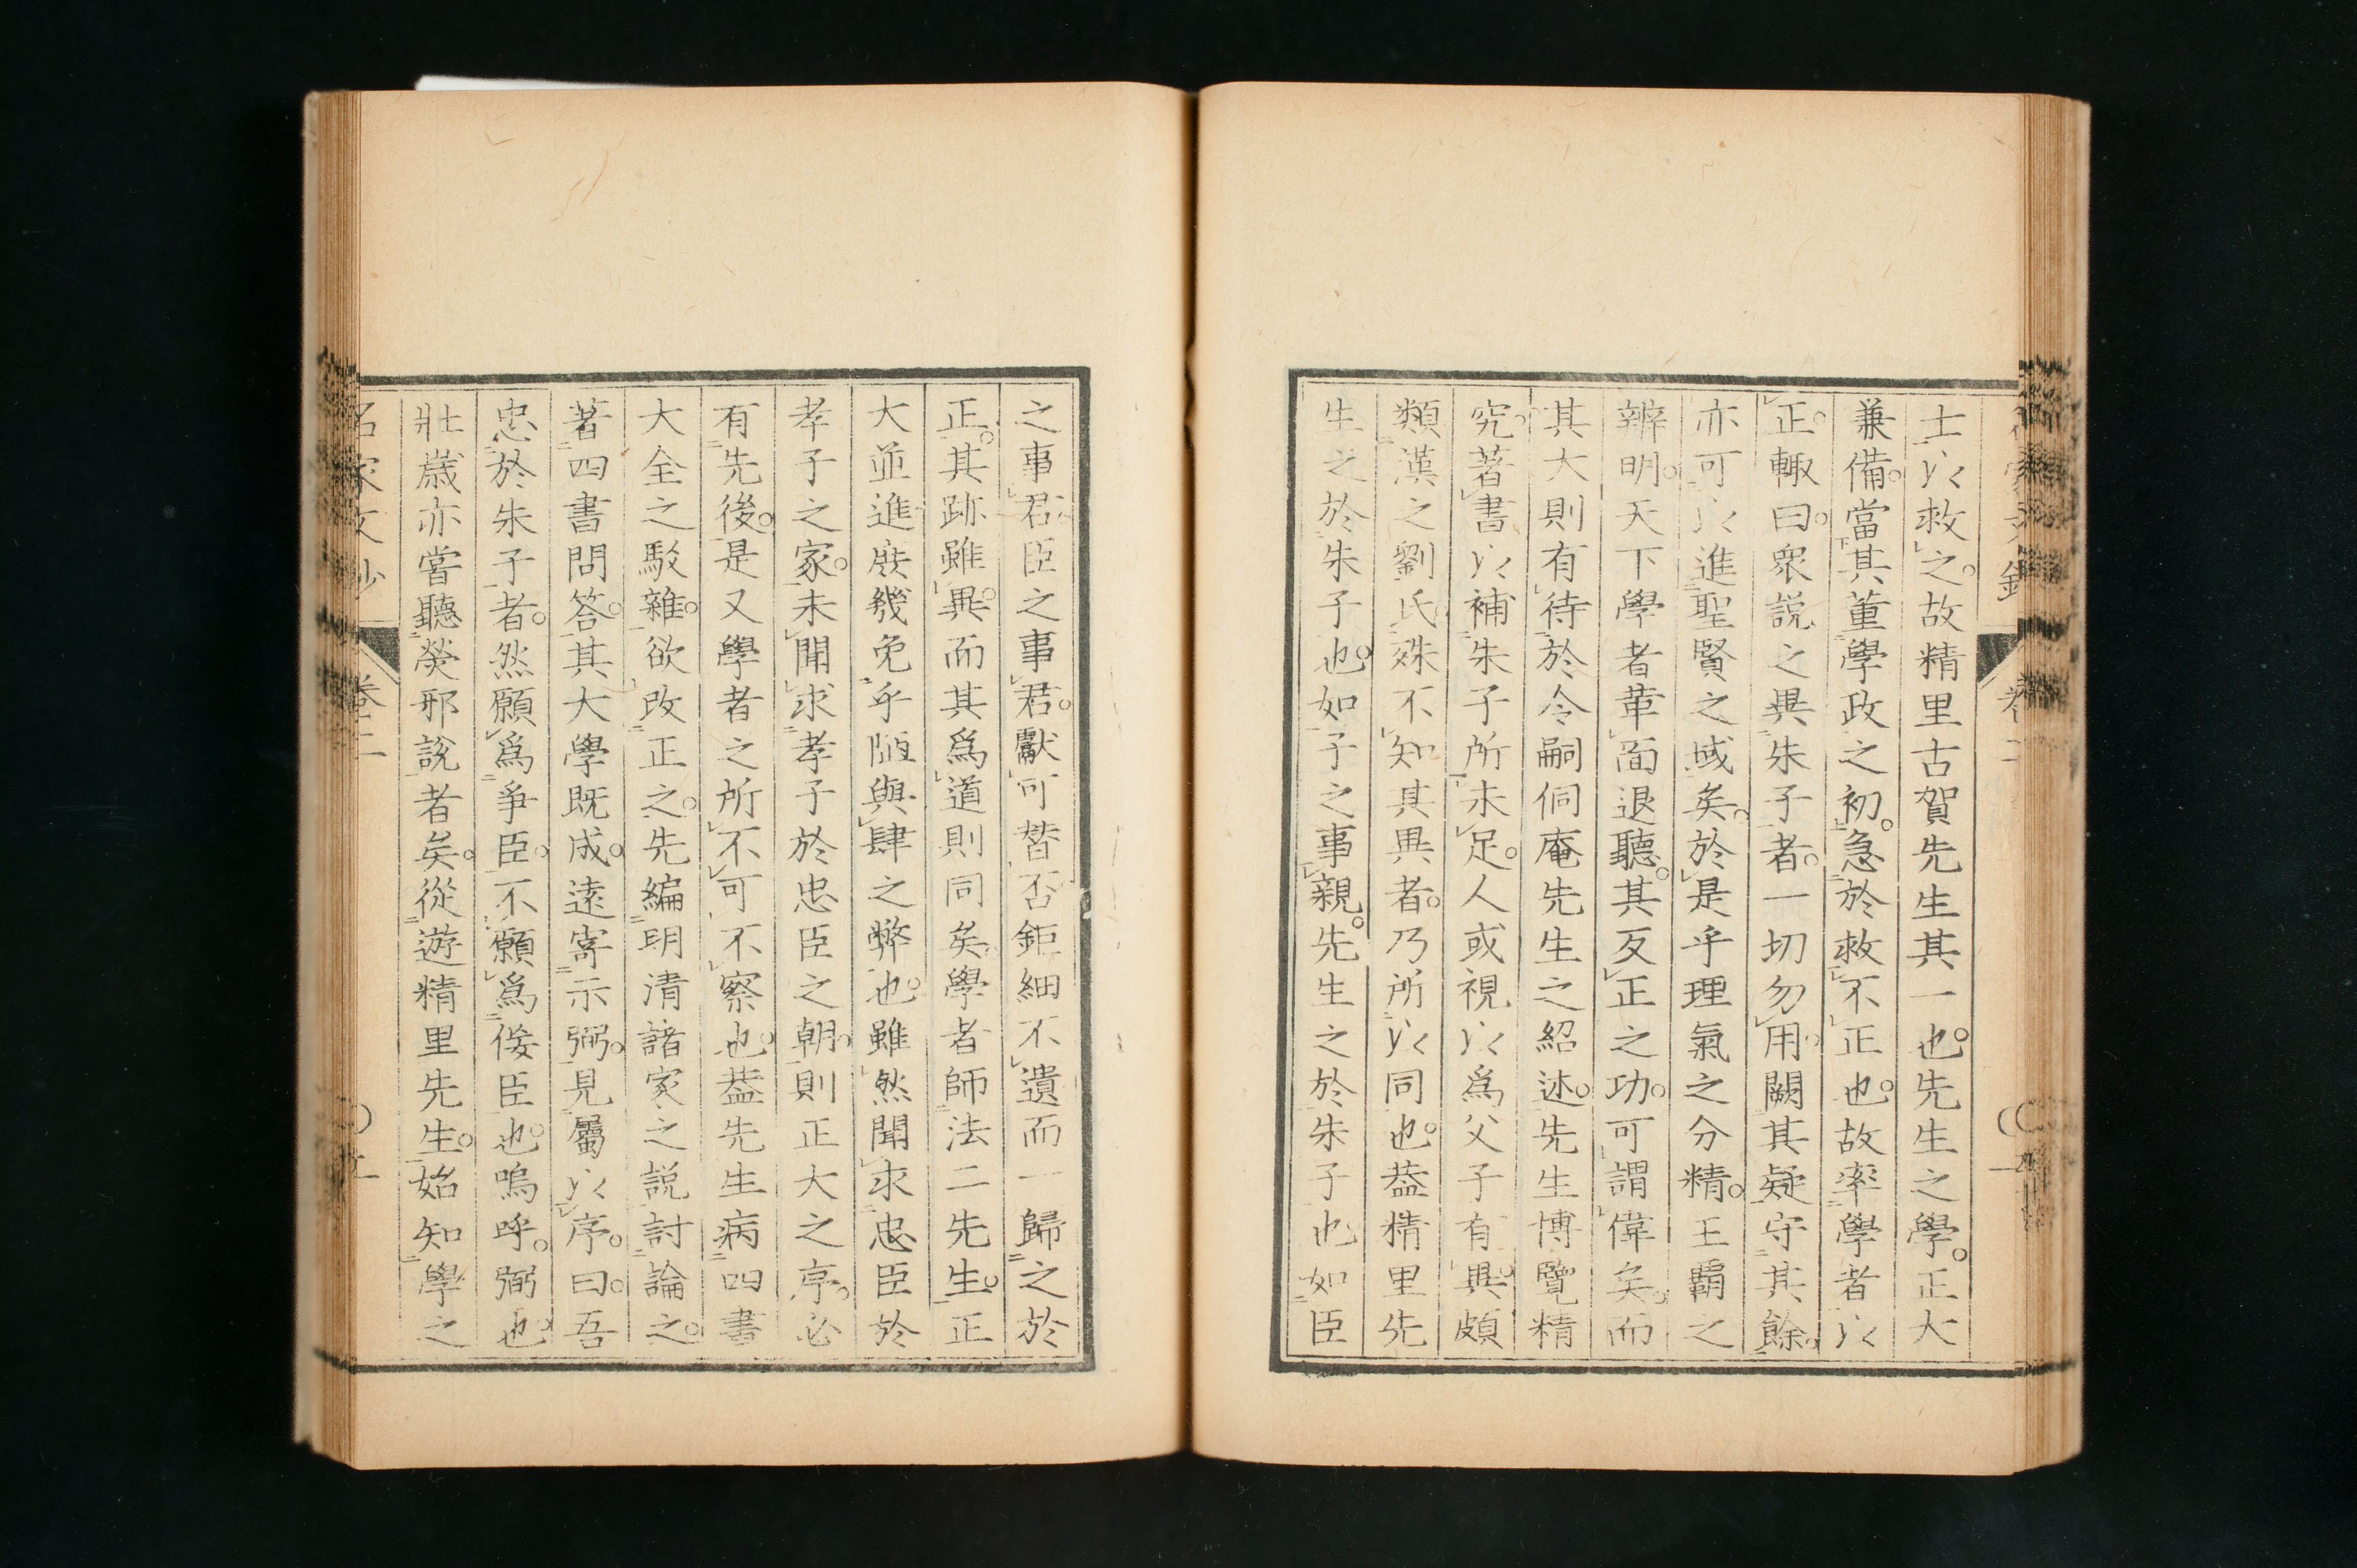 士以救之。故精里古賀先生其一也。先生之學。正大
兼備。當其董學政之初。急於救不正也。故率學者以
正。輙曰。衆説之異朱子者。一切勿用。闕其疑守其餘。
亦可以進聖賢之域矣。於是乎理氣之分精。王霸之
辨明。天下學者革面退聽。其反正之功。可謂偉矣。而
其大則有待於令嗣侗庵先生之紹述。先生博覽精
究。著書以補朱子所未足。人或視以爲父子有異。頗
類漢之劉氏。殊不知其異者。乃所以同也。葢精里先
生之於朱子也。如子之事親。先生之於朱子也如臣
之事君。臣之事君。獻可替否鉅細不遺而一歸之於
正。其跡雖異。而其爲道則同矣。學者師法二先生。正
大並進庶幾免乎陋與肆之弊也。雖然聞求忠臣於
孝子之家。未聞求孝子於忠臣之朝。則正大之序。必
有先後。是又學者之所不可不察也。葢先生病四書
大全之駁雜。欲改正之。先編明清諸家之説討論之。
著四書問答。其大學既成。遠寄示弼。見屬以序。曰。吾
忠於朱子者。然願爲爭臣。不願爲佞臣也。嗚呼。弼也
壯歲亦嘗聽熒邪説者矣。從遊精里先生。始知學之
名家文抄
卷二